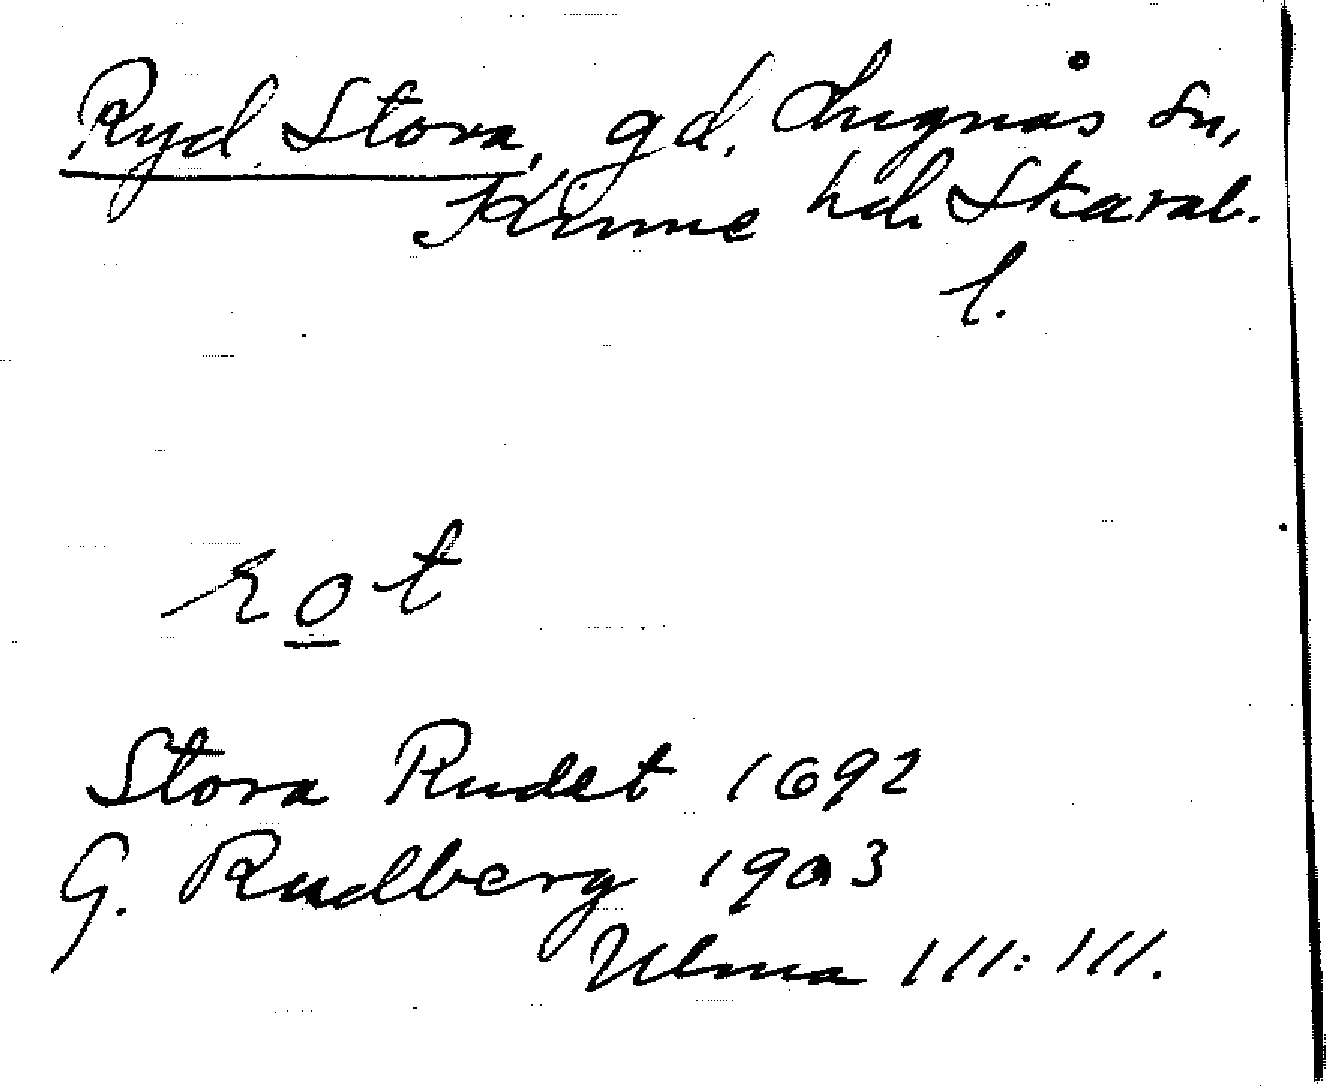 Ryd, Stora, gd, Lugnås sn,
Kinne hd. Skarab.
l.
Stora Rudet 1692
G. Rudberg 1903
Ulma 111:111.